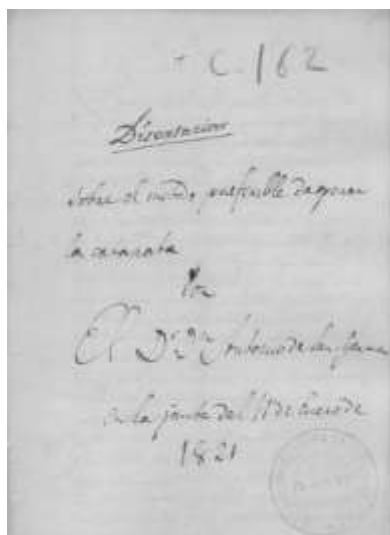 C. 162
Disertacion
sobre el modo preferible de operar
la catarata
Por
El Dr. Dn. Antonio de San
en la junta del 11 de Enero de
1821